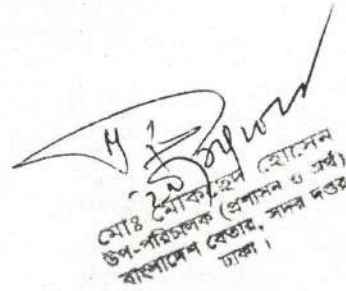 মোঃ মোকাদ্দেস হোসেন
উপ-পরিচালক (প্রশাসন ও অর্থ)
বাংলাদেশ বেতার, সদর দপ্তর
ঢাকা।